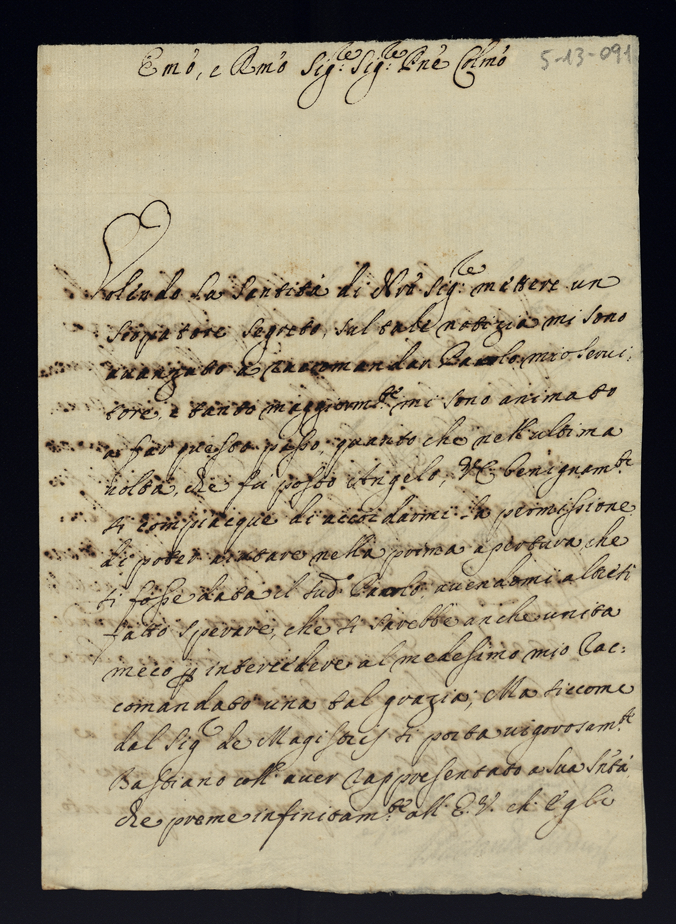 Emô, e Rmô Sig:re Sig:re Pñe Colmô
5-13-091
Volendo la Santità di Nrô Sig:re mettere un
scopatore segreto, sul tale notizia mi sono
avanzato a raccomandar Carlo mio servi:
tore, e tanto maggiorm:te mi sono animato
a far questo passo, quanto che nell'ultima
volta, che fu posto Angelo, VE benignam:te
si compiacque di accordarmi la permissione
di poter aiutare nella prima apertura che
si fosse data il sud:o Carlo, avendomi altresì
fatto sperare, che si sarebbe anche unita
meco p intercedere al medesimo mio rac:
comandato una tal grazia; Ma siccome
dal Sig:re de Magistris si porta vigorosam:te
Bastiano coll'aver rappresentato a Sua Sntà
che preme infinitam:te all'E.V. ch'Egli